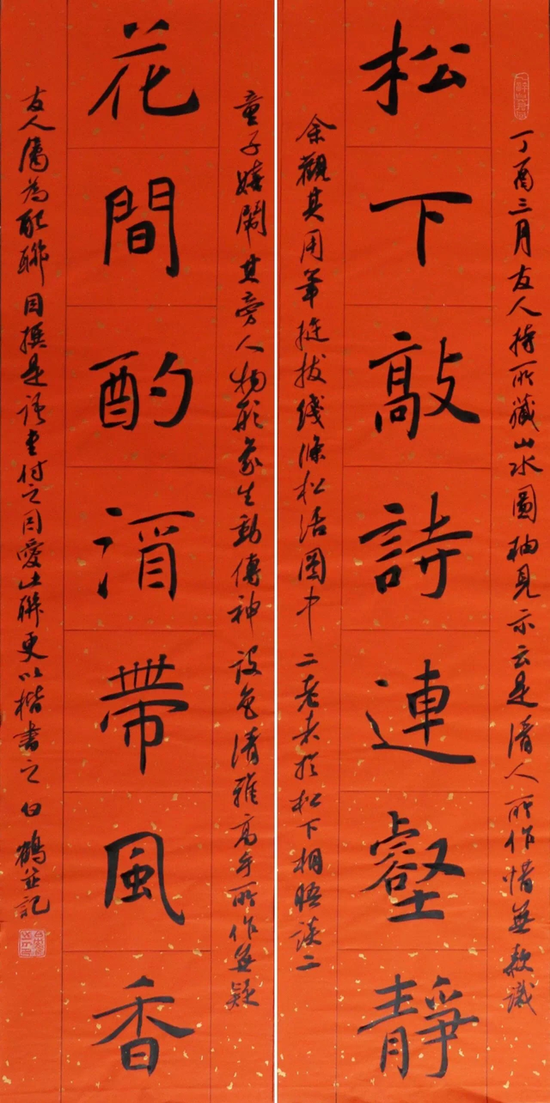 丁酉三月友人持所藏山水圖軸見示云是清人所作惜無款識
松下敲詩連壑靜
余觀其用筆挺拔綫條松活圖中二老夫於松下相晤談二
童子嬉鬧其旁人物形象生動傳神設色清雅高手所作無疑
花間酌酒帶風香
友人屬為配聯因撰是語書付之因愛此聯更以楷書之白鶴並記